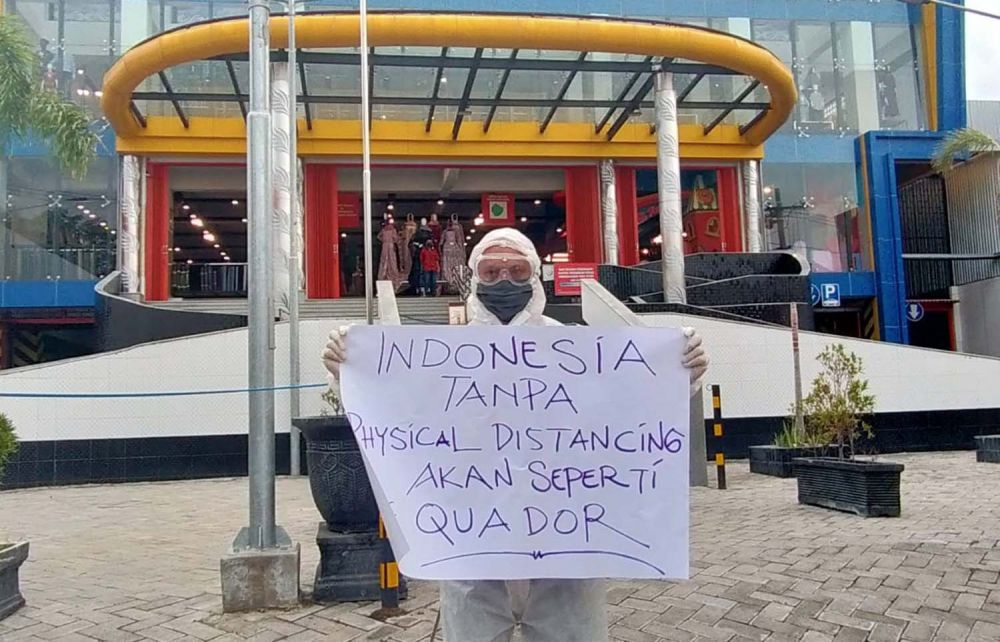 INDONESIA
TANPA
PHYSICAL DISTANCING
AKAN SEPERTI
QUADOR
P